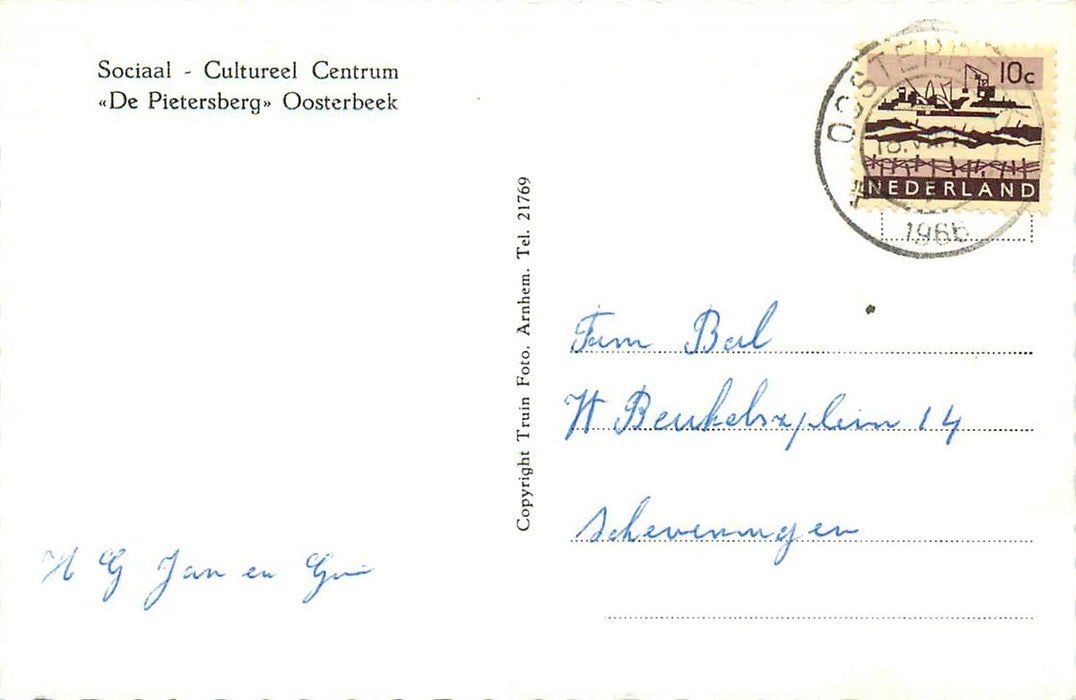 Sociaal - Cultureel Centrum
«De Pietersberg» Oosterbeek
10c
NEDERLAND
1966
Copyright Truin Foto. Arnhem. Tel. 21769
Fam Bal
W Beukelszplein 14
Scheveningen
H G Jan en